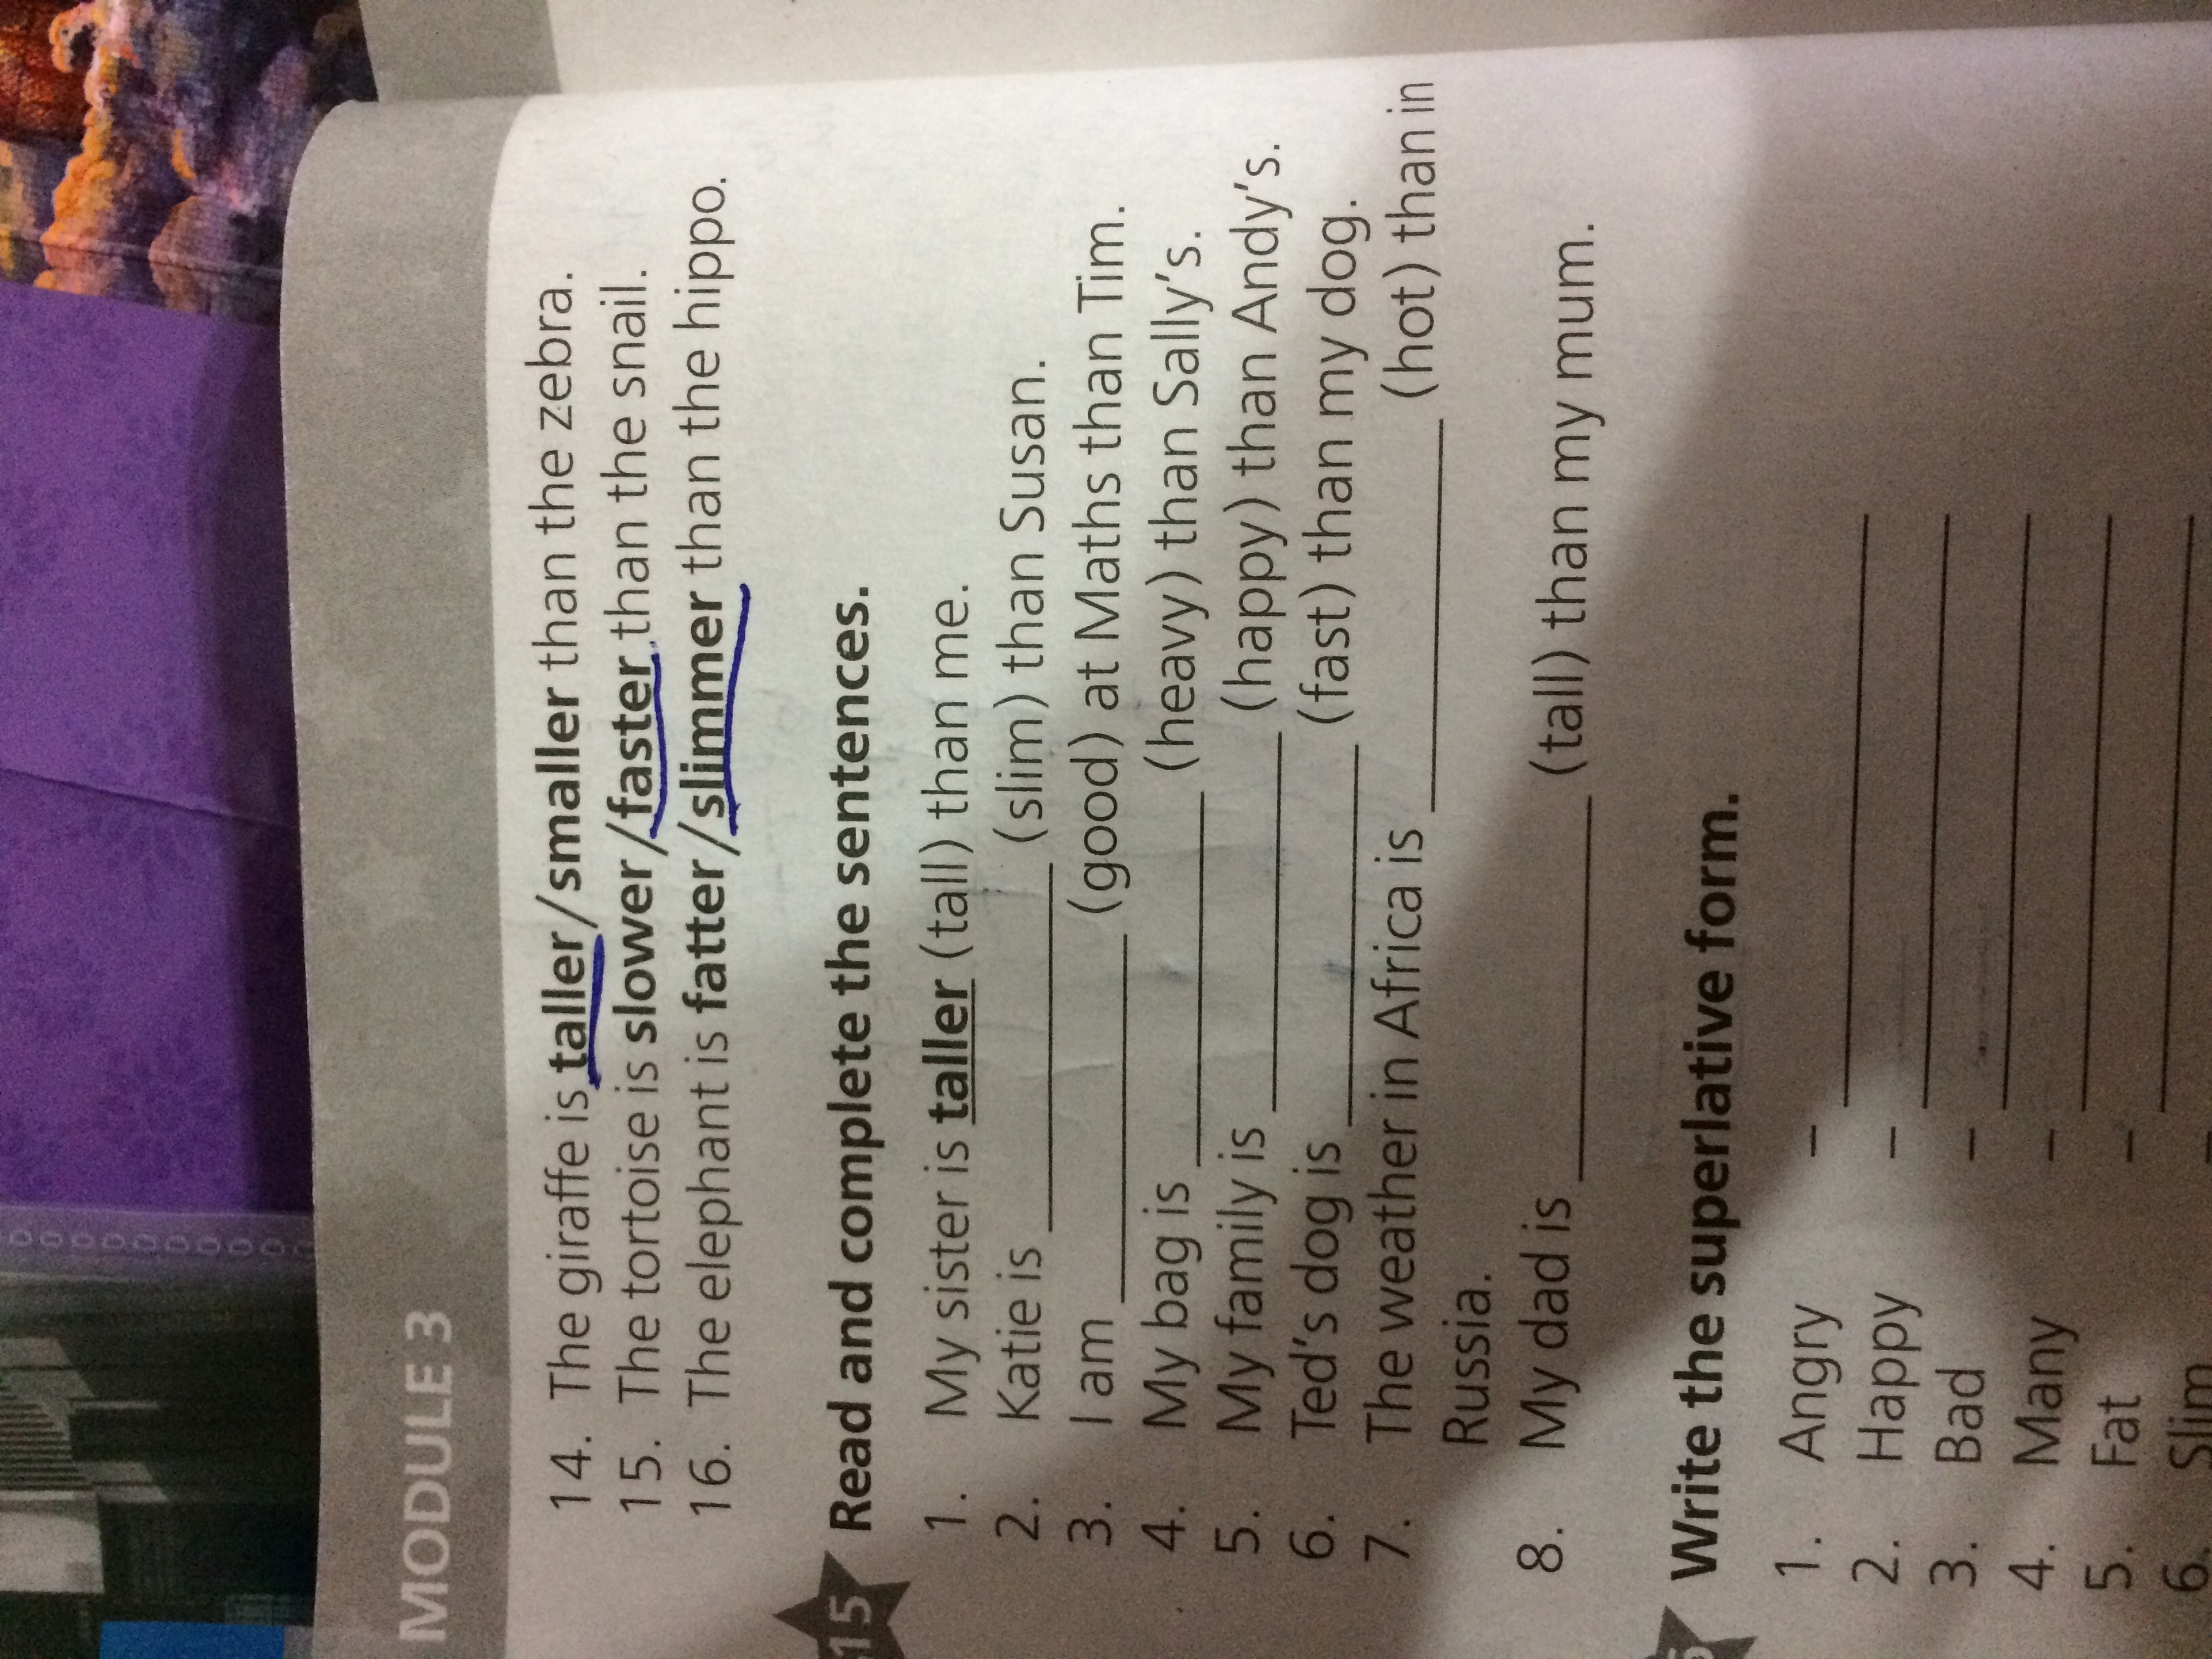 MODULE 3
14. The giraffe is taller/smaller than the zebra.
15. The tortoise is slower/faster than the snail.
16. The elephant is fatter/slimmer than the hippo.
15 Read and complete the sentences.
1. My sister is taller (tall) than me.
2. Katie is ____________ (slim) than Susan.
3. I am ____________ (good) at Maths than Tim.
4. My bag is ____________ (heavy) than Sally's.
5. My family is ____________ (happy) than Andy's.
6. Ted's dog is ____________ (fast) than my dog.
7. The weather in Africa is ____________ (hot) than in
Russia.
8. My dad is ____________ (tall) than my mum.
Write the superlative form.
1. Angry – ____________
2. Happy – ____________
3. Bad – ____________
4. Many – ____________
5. Fat – ____________
6. Slim – ____________